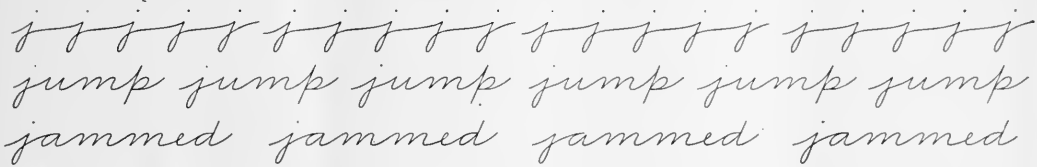 jjjjj jjjjj jjjjj jjjjj
jump jump jump jump jump jump
jammed jammed jammed jammed